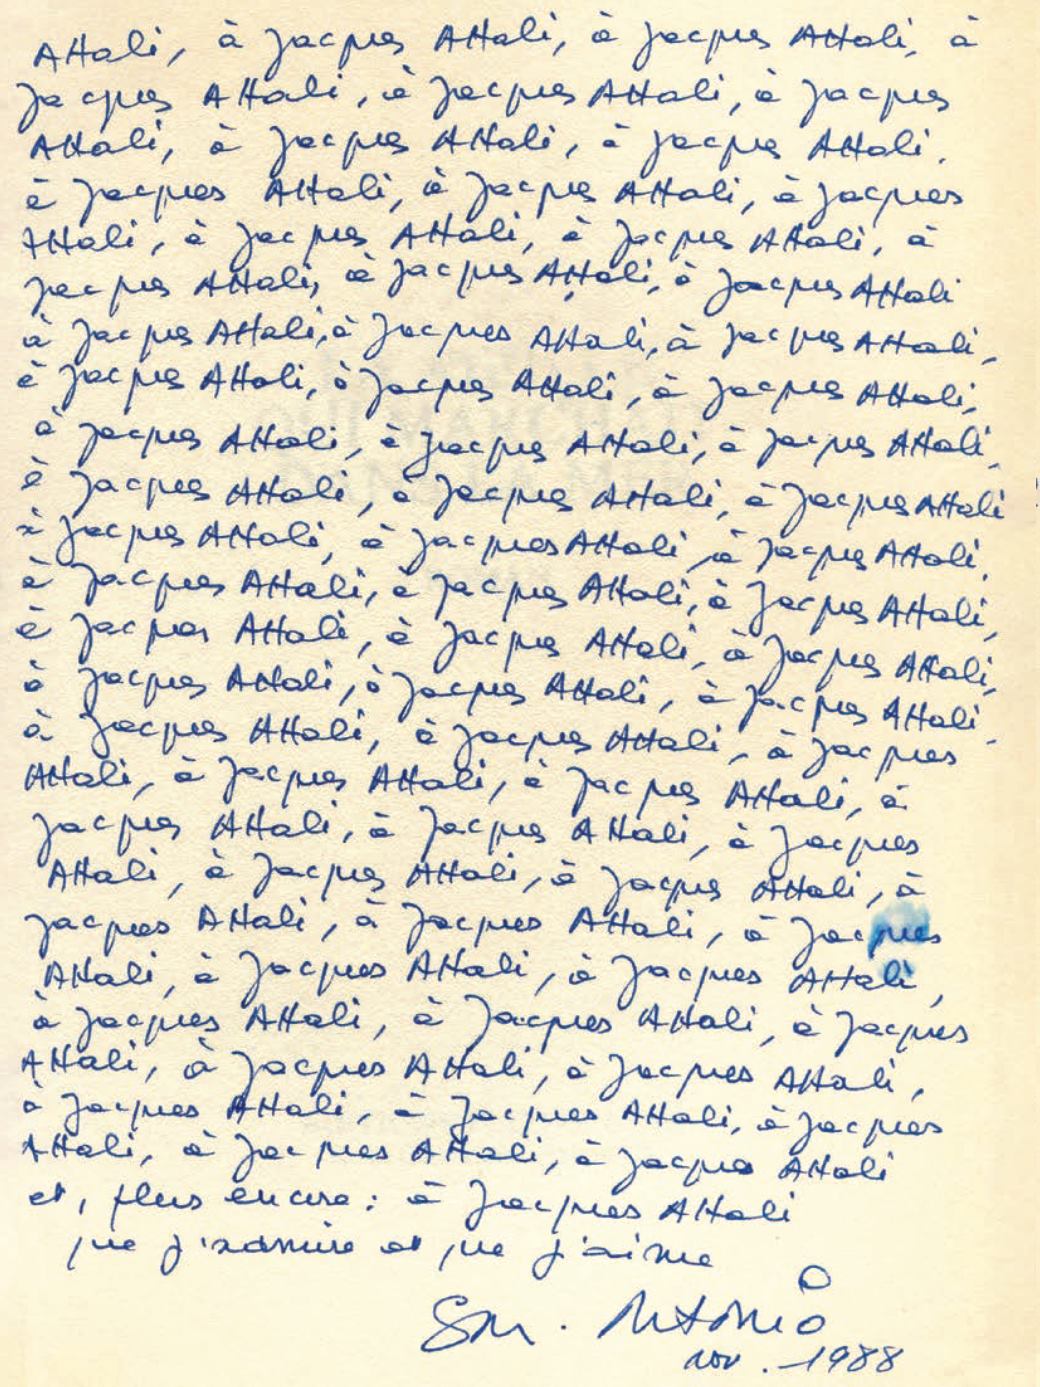 Attali, à Jacques Attali, à Jacques Attali, à
Jacques Attali, à Jacques Attali, à Jacques
Attali, à Jacques Attali, à Jacques Attali,
à Jacques Attali, à Jacques Attali, à Jacques
Attali, à Jacques Attali, à Jacques Attali, à
Jacques Attali, à Jacques Attali, à Jacques Attali
à Jacques Attali, à Jacques Attali, à Jacques Attali,
à Jacques Attali, à Jacques Attali, à Jacques Attali,
à Jacques Attali, à Jacques Attali, à Jacques Attali,
à Jacques Attali, à Jacques Attali, à Jacques Attali
à Jacques Attali, à Jacques Attali, à Jacques Attali,
à Jacques Attali, à Jacques Attali, à Jacques Attali,
à Jacques Attali, à Jacques Attali, à Jacques Attali,
à Jacques Attali, à Jacques Attali, à Jacques Attali,
à Jacques Attali, à Jacques Attali, à Jacques
Attali, à Jacques Attali, à Jacques Attali, à
Jacques Attali, à Jacques Attali, à Jacques
Attali, à Jacques Attali, à Jacques Attali, à
Jacques Attali, à Jacques Attali, à Jacques
Attali, à Jacques Attali, à Jacques Attali,
à Jacques Attali, à Jacques Attali, à Jacques
Attali, à Jacques Attali, à Jacques Attali,
à Jacques Attali, à Jacques Attali, à Jacques
Attali, à Jacques Attali, à Jacques Attali
et, plus encore : à Jacques Attali
que j'admire et que j'aime
San . Antonio
nov. 1988